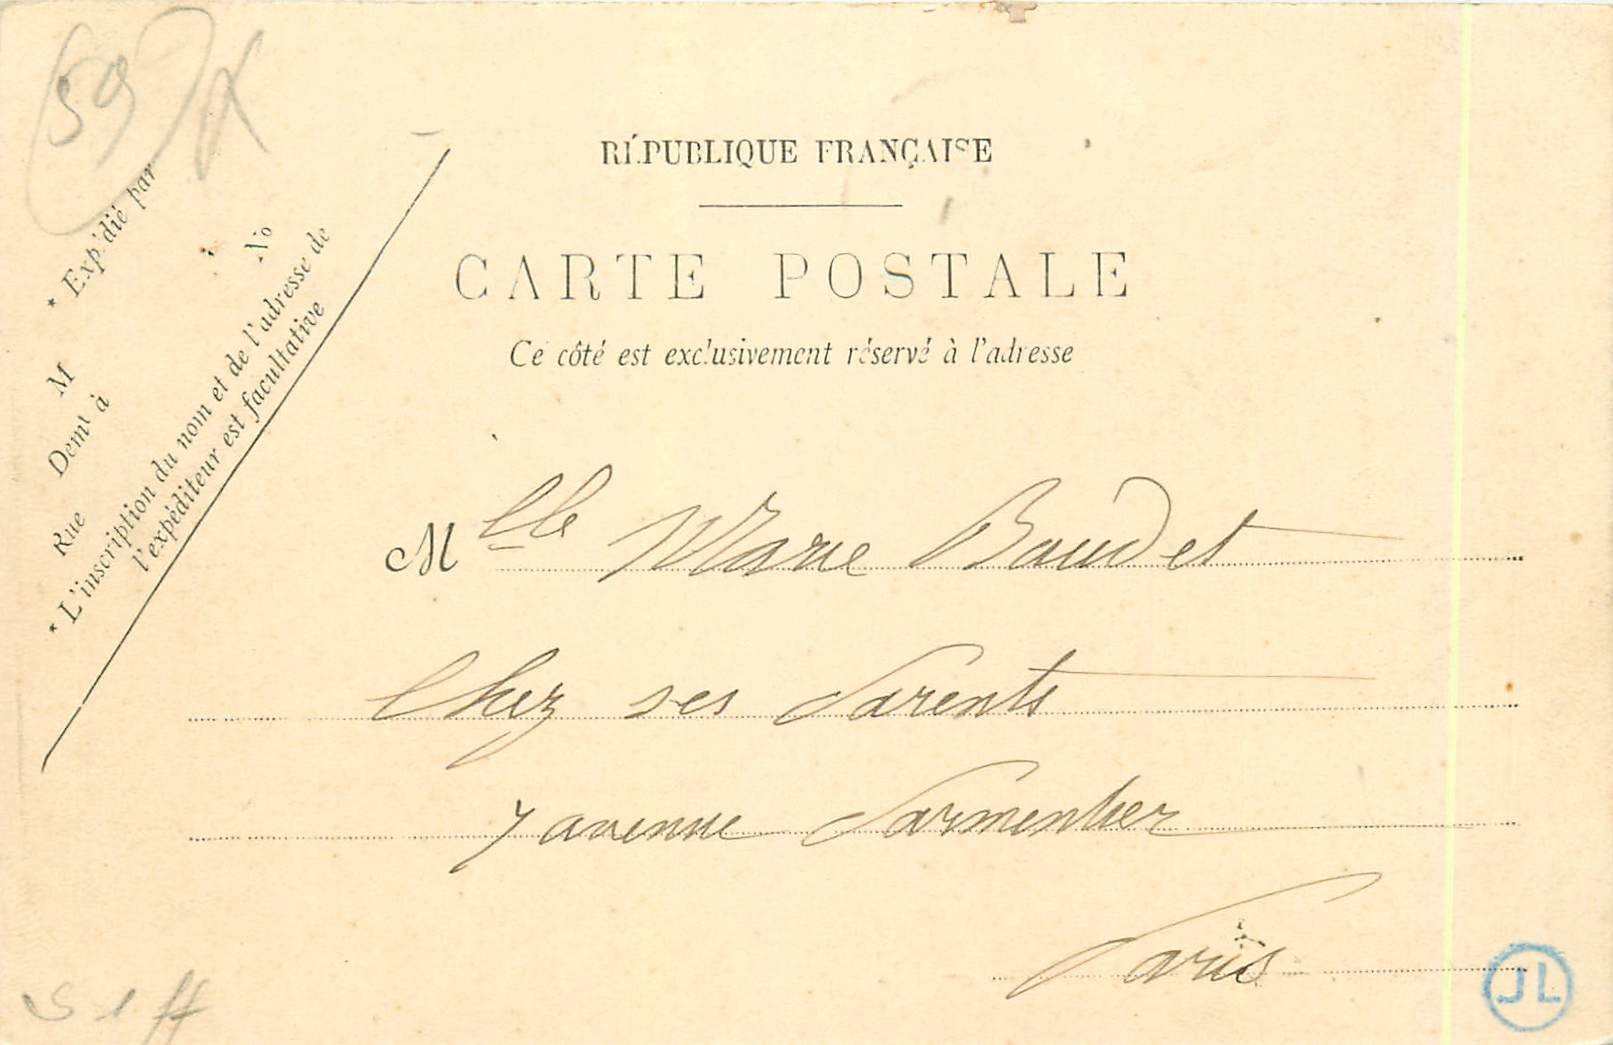 59
RÉPUBLIQUE FRANÇAISE
CARTE POSTALE
Ce côté est exclusivement réservé à l'adresse
* Expédié par
M
Demt à
Rue
No
* L'inscription du nom et de l'adresse de
l'expéditeur est facultative
Mlle Marie Baudet
Chez ses Parents
7 avenue Parmentier
Paris
JL